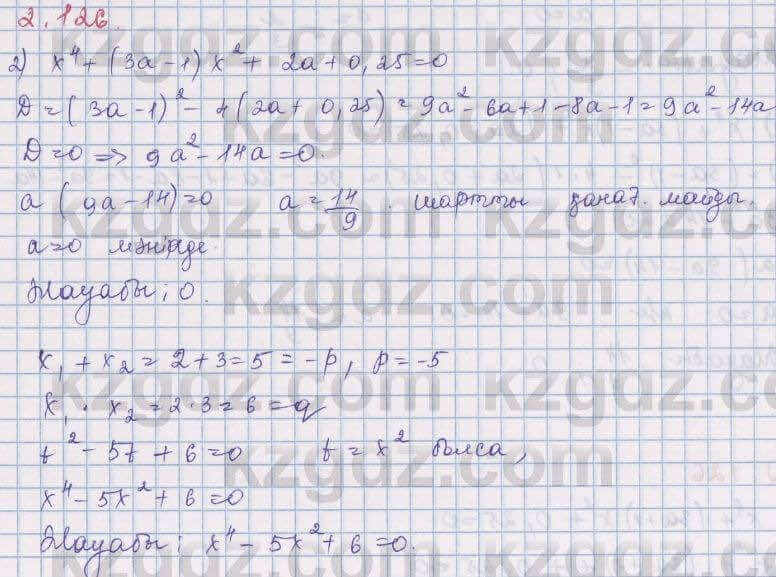 2.126.
2) x⁴ + (3a-1)x² + 2a + 0,25 = 0
D = (3a-1)² - 4(2a + 0,25) = 9a² - 6a + 1 - 8a - 1 = 9a² - 14a
D = 0 => 9a² - 14a = 0.
a (9a - 14) = 0 a = 14/9 . шартты қанағ. майды.
a = 0 мәнінде.
Жауабы: 0.
x₁ + x₂ = 2 + 3 = 5 = -p, p = -5
x₁ · x₂ = 2 · 3 = 6 = q
t² - 5t + 6 = 0 t = x² болса,
x⁴ - 5x² + 6 = 0
Жауабы: x⁴ - 5x² + 6 = 0.
kzgdz.com